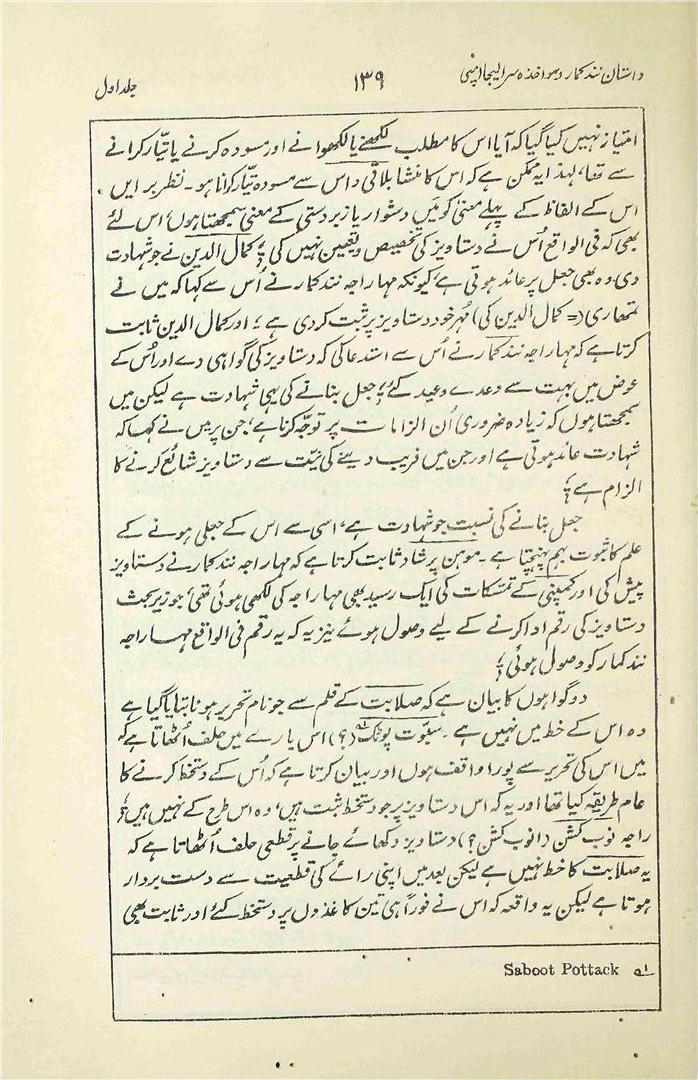 داستان نند کمار و مواخذہ سر ایلیجا امپی
۱۳۹
جلد اول
امتیاز نہیں کیا گیا کہ آیا اس کا مطلب لکھنے یا لکھوانے اور مسودہ کرنے یا تیّار کرانے
سے تھا، لہذا یہ ممکن ہے کہ اس کا منشا بلاقی داس سے مسودہ تیّار کرانا ہو۔ نظر بر ایں
اس کے الفاظ کے پہلے معنی کو مَیں دشوار یا زبردستی کے معنی سمجھتا ہوں، اس لئے
بھی کہ فی الواقع اُس نے دستاویز کی تخصیص و تعیین نہیں کی؛ کمال الدین نے جو شہادت
دی وہ بھی جعل پر عائد ہوتی ہے، کیونکہ مہاراجہ نند کمار نے اُس سے کہا کہ میں نے
تمھاری (= کمال الدین کی) مُہر خود دستاویز پر ثبت کر دی ہے؛ اور کمال الدین ثابت
کرتا ہے کہ مہاراجہ نند کمار نے اُس سے استدعا کی کہ دستاویز کی گواہی دے اور اُس کے
عوض میں بہت سے وعدے وعید کئے؛ جعل بنانے کی یہی شہادت ہے لیکن میں
سمجھتا ہوں کہ زیادہ ضروری اُن الزامات پر توجّہ کرنا ہے، جن پر میں نے کہا کہ
شہادت عائد ہوتی ہے اور جن میں فریب دینے کی نیّت سے دستاویز شائع کرنے کا
الزام ہے؛
جعل بنانے کی نسبت جو شہادت ہے، اسی سے اس کے جعلی ہونے کے
علم کا ثبوت بہم پہنچتا ہے۔ موہن پرشاد ثابت کرتا ہے کہ مہاراجہ نند کمار نے دستاویز
پیش کی اور کمپنی کے تمسّکات کی ایک رسید بھی مہاراجہ کی لکھی ہوئی تھی، جو زیر بحث
دستاویز کی رقم ادا کرنے کے لیے وصول ہوئے نیز یہ کہ یہ رقم فی الواقع مہاراجہ
نند کمار کو وصول ہوئی؛
دو گواہوں کا بیان ہے کہ صلابت کے قلم سے جو نام تحریر ہونا بتایا گیا ہے
وہ اس کے خط میں نہیں ہے۔ سبّوت پوٹک (؟) اس بارے میں حلف اُٹھاتا ہے کہ
میں اس کی تحریر سے پورا واقف ہوں اور بیان کرتا ہے کہ اُس کے دستخط کرنے کا
عام طریقہ کیا تھا اور یہ کہ اس دستاویز پر جو دستخط ثبت ہیں، وہ اس طرح کے نہیں ہیں؛
راجہ نوب کشن (انوب کشن؟) دستاویز دکھائے جانے پر قطعی حلف اُٹھاتا ہے کہ
یہ صلابت کا خط نہیں ہے لیکن بعد میں اپنی رائے کی قطعیت سے دست بردار
ہوتا ہے لیکن یہ واقعہ کہ اس نے فوراً ہی تین کاغذوں پر دستخط کئے اور ثابت بھی
۱ Saboot Pottack